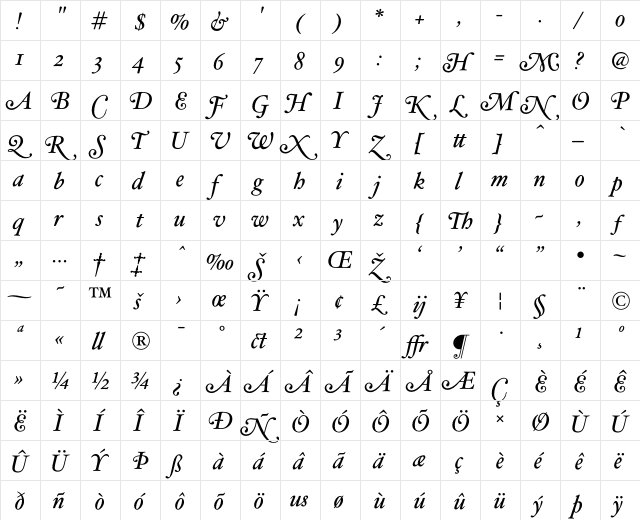 ! " # $ % & ' ( ) * + , - . / 0
1 2 3 4 5 6 7 8 9 : ; H = M ? @
A B C D E F G H I J K L M N O P
Q R S T U V W X Y Z [ tt ] ˆ – `
a b c d e f g h i j k l m n o p
q r s t u v w x y z { Th } ~ , f
„ … † ‡ ˆ ‰ Š ‹ Œ Ž ‘ ’ “ ” • ~
— ˜ ™ š › œ Ÿ ¡ ¢ £ ij ¥ ¦ § ¨ ©
ª « ll ® ¯ ° ct ² ³ ´ ffr ¶ · ¸ ¹ º
» ¼ ½ ¾ ¿ À Á Â Ã Ä Å Æ Ç È É Ê
Ë Ì Í Î Ï Ð Ñ Ò Ó Ô Õ Ö × Ø Ù Ú
Û Ü Ý Þ ß à á â ã ä æ ç è é ê ë
ð ñ ò ó ô õ ö us ø ù ú û ü ý þ ÿ